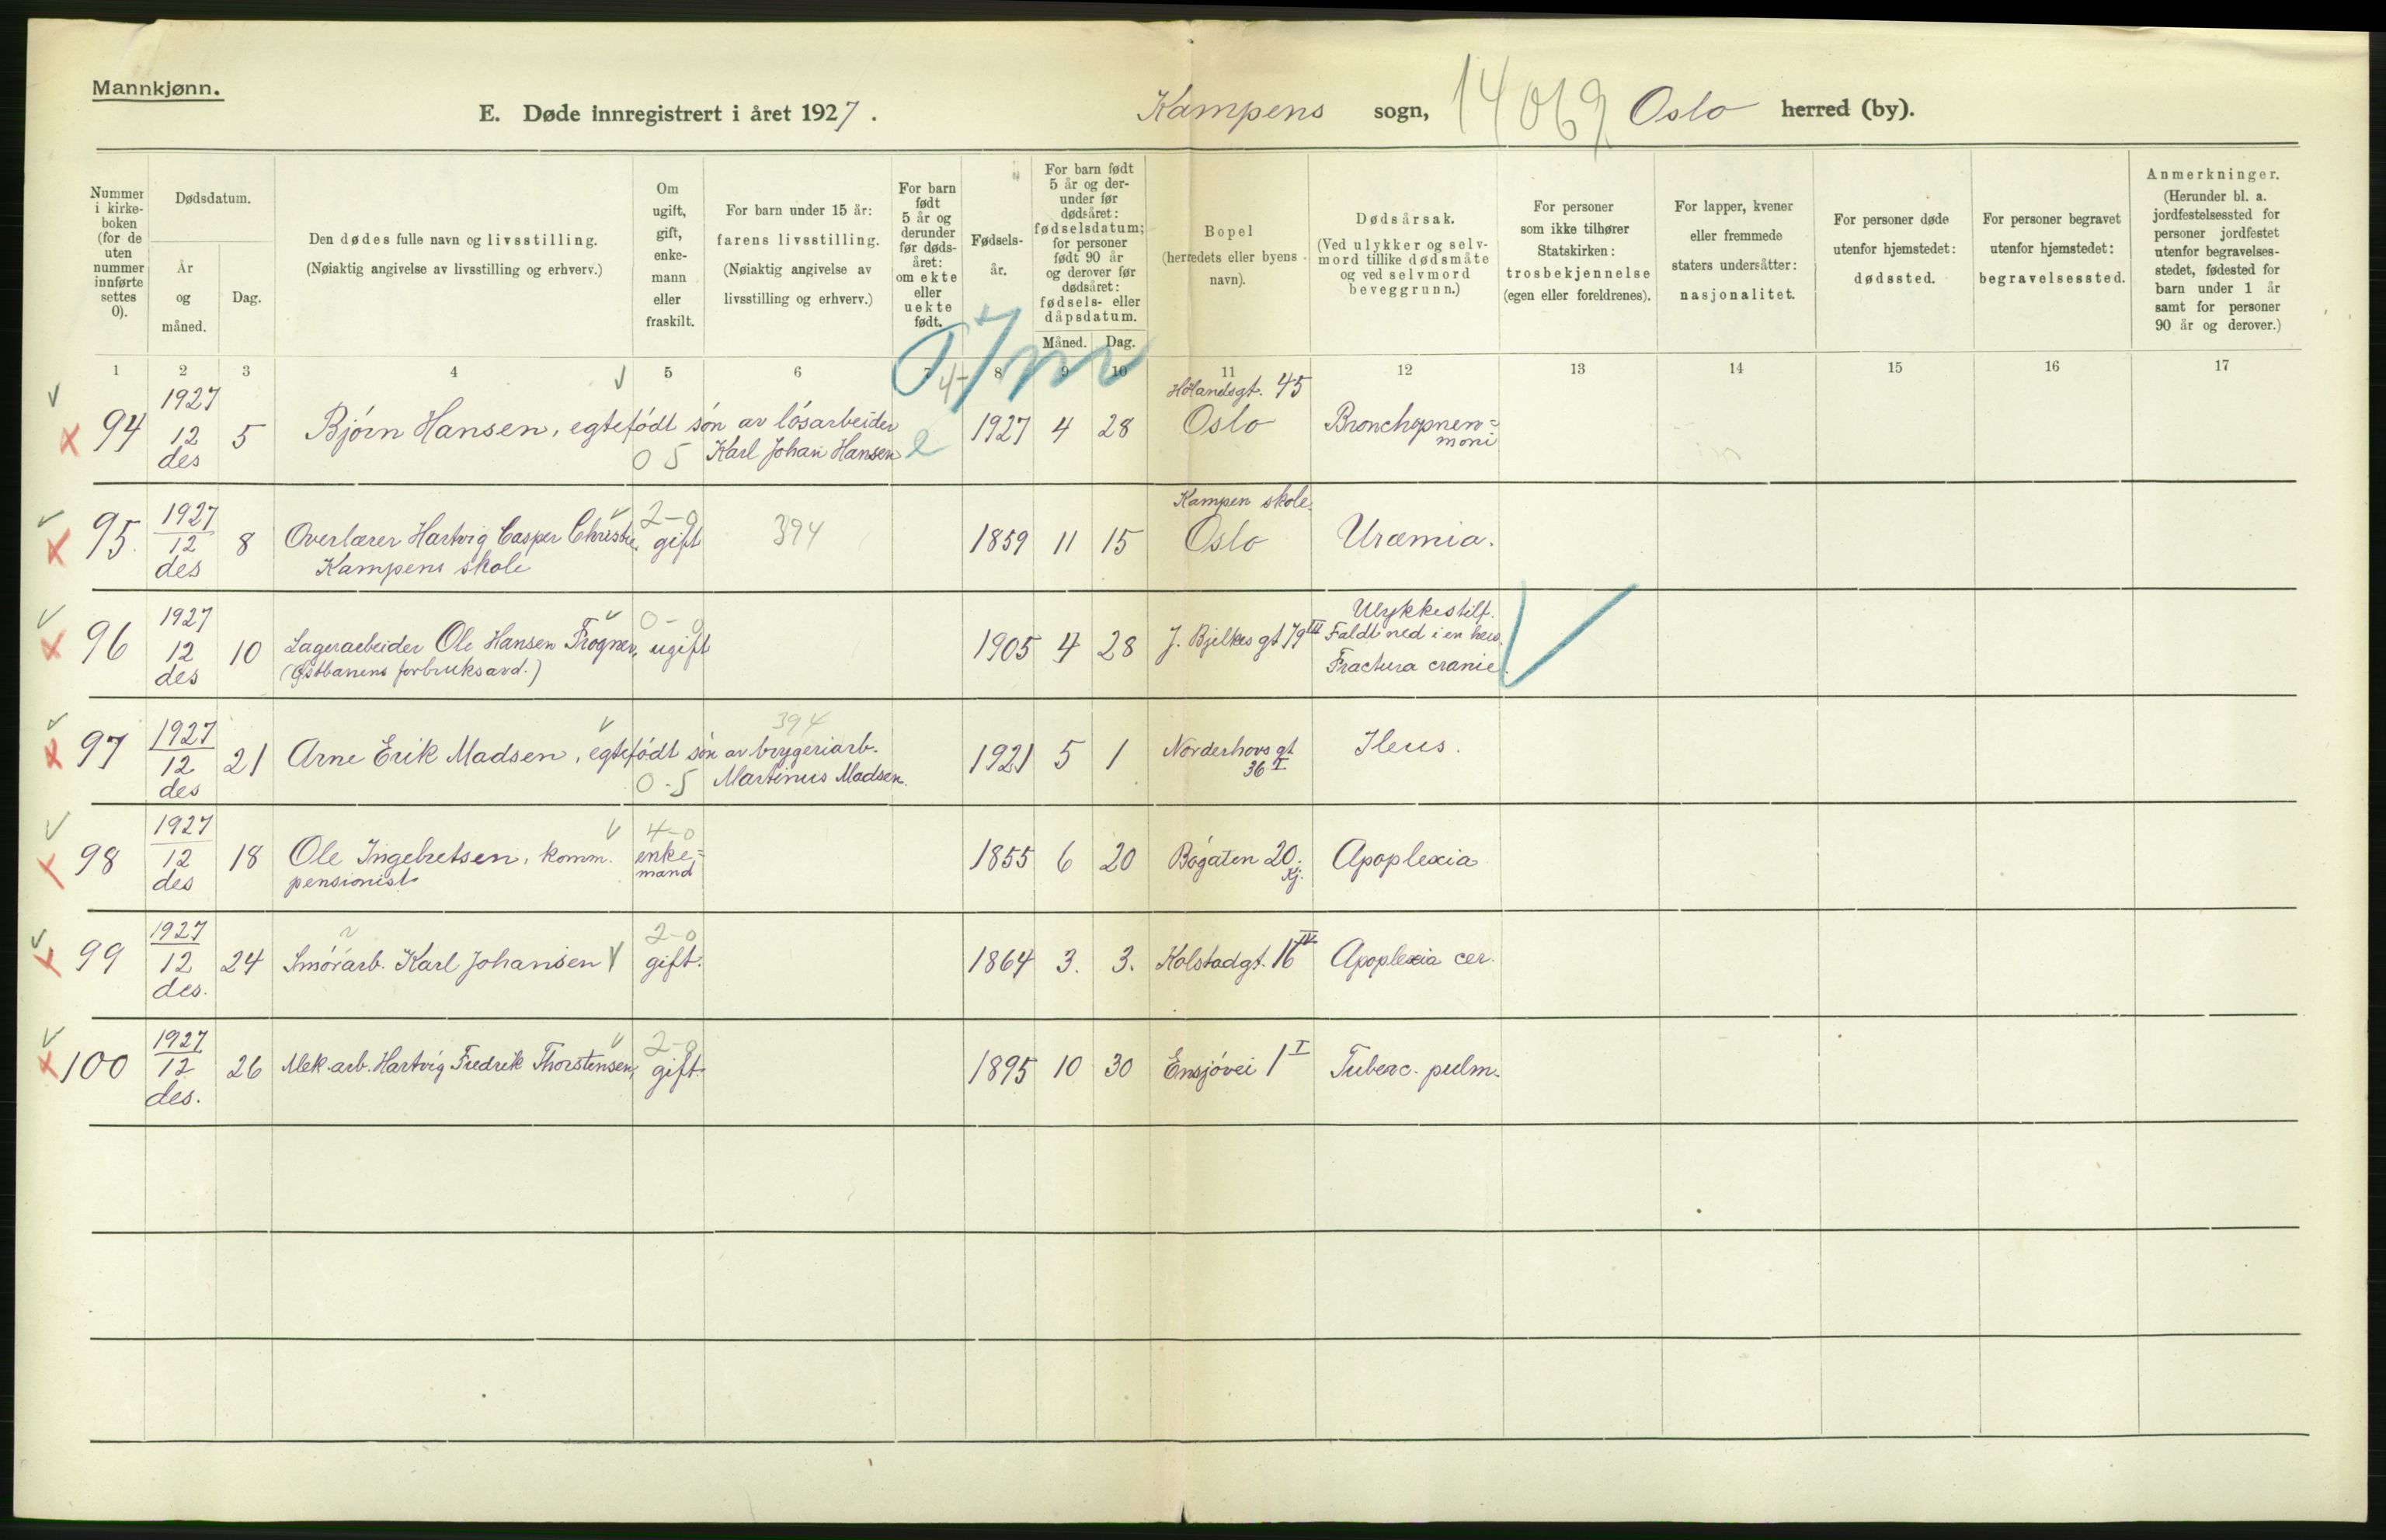 Mannkjønn.
E. Døde innregistrert i året 1927. Kampens sogn, 14069 Oslo herred (by).
Nummer i kirke-boken (for de uten nummer innførte settes 0).
Dødsdatum.
År og måned.
Dag.
Den dødes fulle navn og livsstilling.
(Nøiaktig angivelse av livsstilling og erhverv.)
Om ugift, gift, enke-mann eller fraskilt.
For barn under 15 år:
farens livsstilling.
(Nøiaktig angivelse av livsstilling og erhverv.)
For barn født 5 år og derunder før døds-året: om ekte eller uekte født.
Fødsels-år.
For barn født 5 år og der-under før dødsåret: fødselsdatum; for personer født 90 år og derover før dødsåret: fødsels- eller dåpsdatum.
Måned. Dag.
Bopel
(herredets eller byens navn).
Dødsårsak.
(Ved ulykker og selv-mord tillike dødsmåte og ved selvmord beveggrunn.)
For personer som ikke tilhører Statskirken: trosbekjennelse (egen eller foreldrenes).
For lapper, kvener eller fremmede staters undersåtter: nasjonalitet.
For personer døde utenfor hjemstedet: dødssted.
For personer begravet utenfor hjemstedet: begravelsessted.
Anmerkninger.
(Herunder bl. a. jordfestelsessted for personer jordfestet utenfor begravelses-stedet, fødested for barn under 1 år samt for personer 90 år og derover.)
1 2 3 4 5 6 7 8 9 10 11 12 13 14 15 16 17
94 1927 12 des 5 Bjørn Hansen, egtefödt sön av lösarbeider Karl Johan Hansen 0 5 e 1927 4 28 Hölandsgt. 45 Oslo Bronchopnen=moni
95. 1927 12 des 8 Overlærer Hartvig Casper Christie, Kampens skole 2-0 gift 394 1859 11 15 Kampen skole. Oslo Uræmia.
96 1927 12 des 10 Lagerarbeider Ole Hansen Frogner, (Østbanens forbruksavd.) 0-0 ugift 1905 4 28 J. Bjelkes gt 79 III Ulykkestilf. Faldt ned i en heis. Fractura cranie.
97 1927 12 des 21 Arne Erik Madsen, egtefödt sön av brygeriarb. Martinus Madsen. 0-5 394 1921 5 1 Norderhovs gt 36 I Ileus.
98 1927 12 des 18 Ole Ingebretsen, komm. pensionist 4-0 enke=mand 1855 6 20 Bögaten 20. Kj. Apoplexia
99 1927 12 des. 24 Smörarb. Karl Johansen 2-0 gift. 1864 3. 3. Kolstadgt. 16 IV Apoplexia cer.
100 1927 12 des. 26 Mek. arb. Hartvig Fredrik Thorstensen, 2-0 gift. 1895 10 30 Ensjövei 1 I Tuberc. pulm.